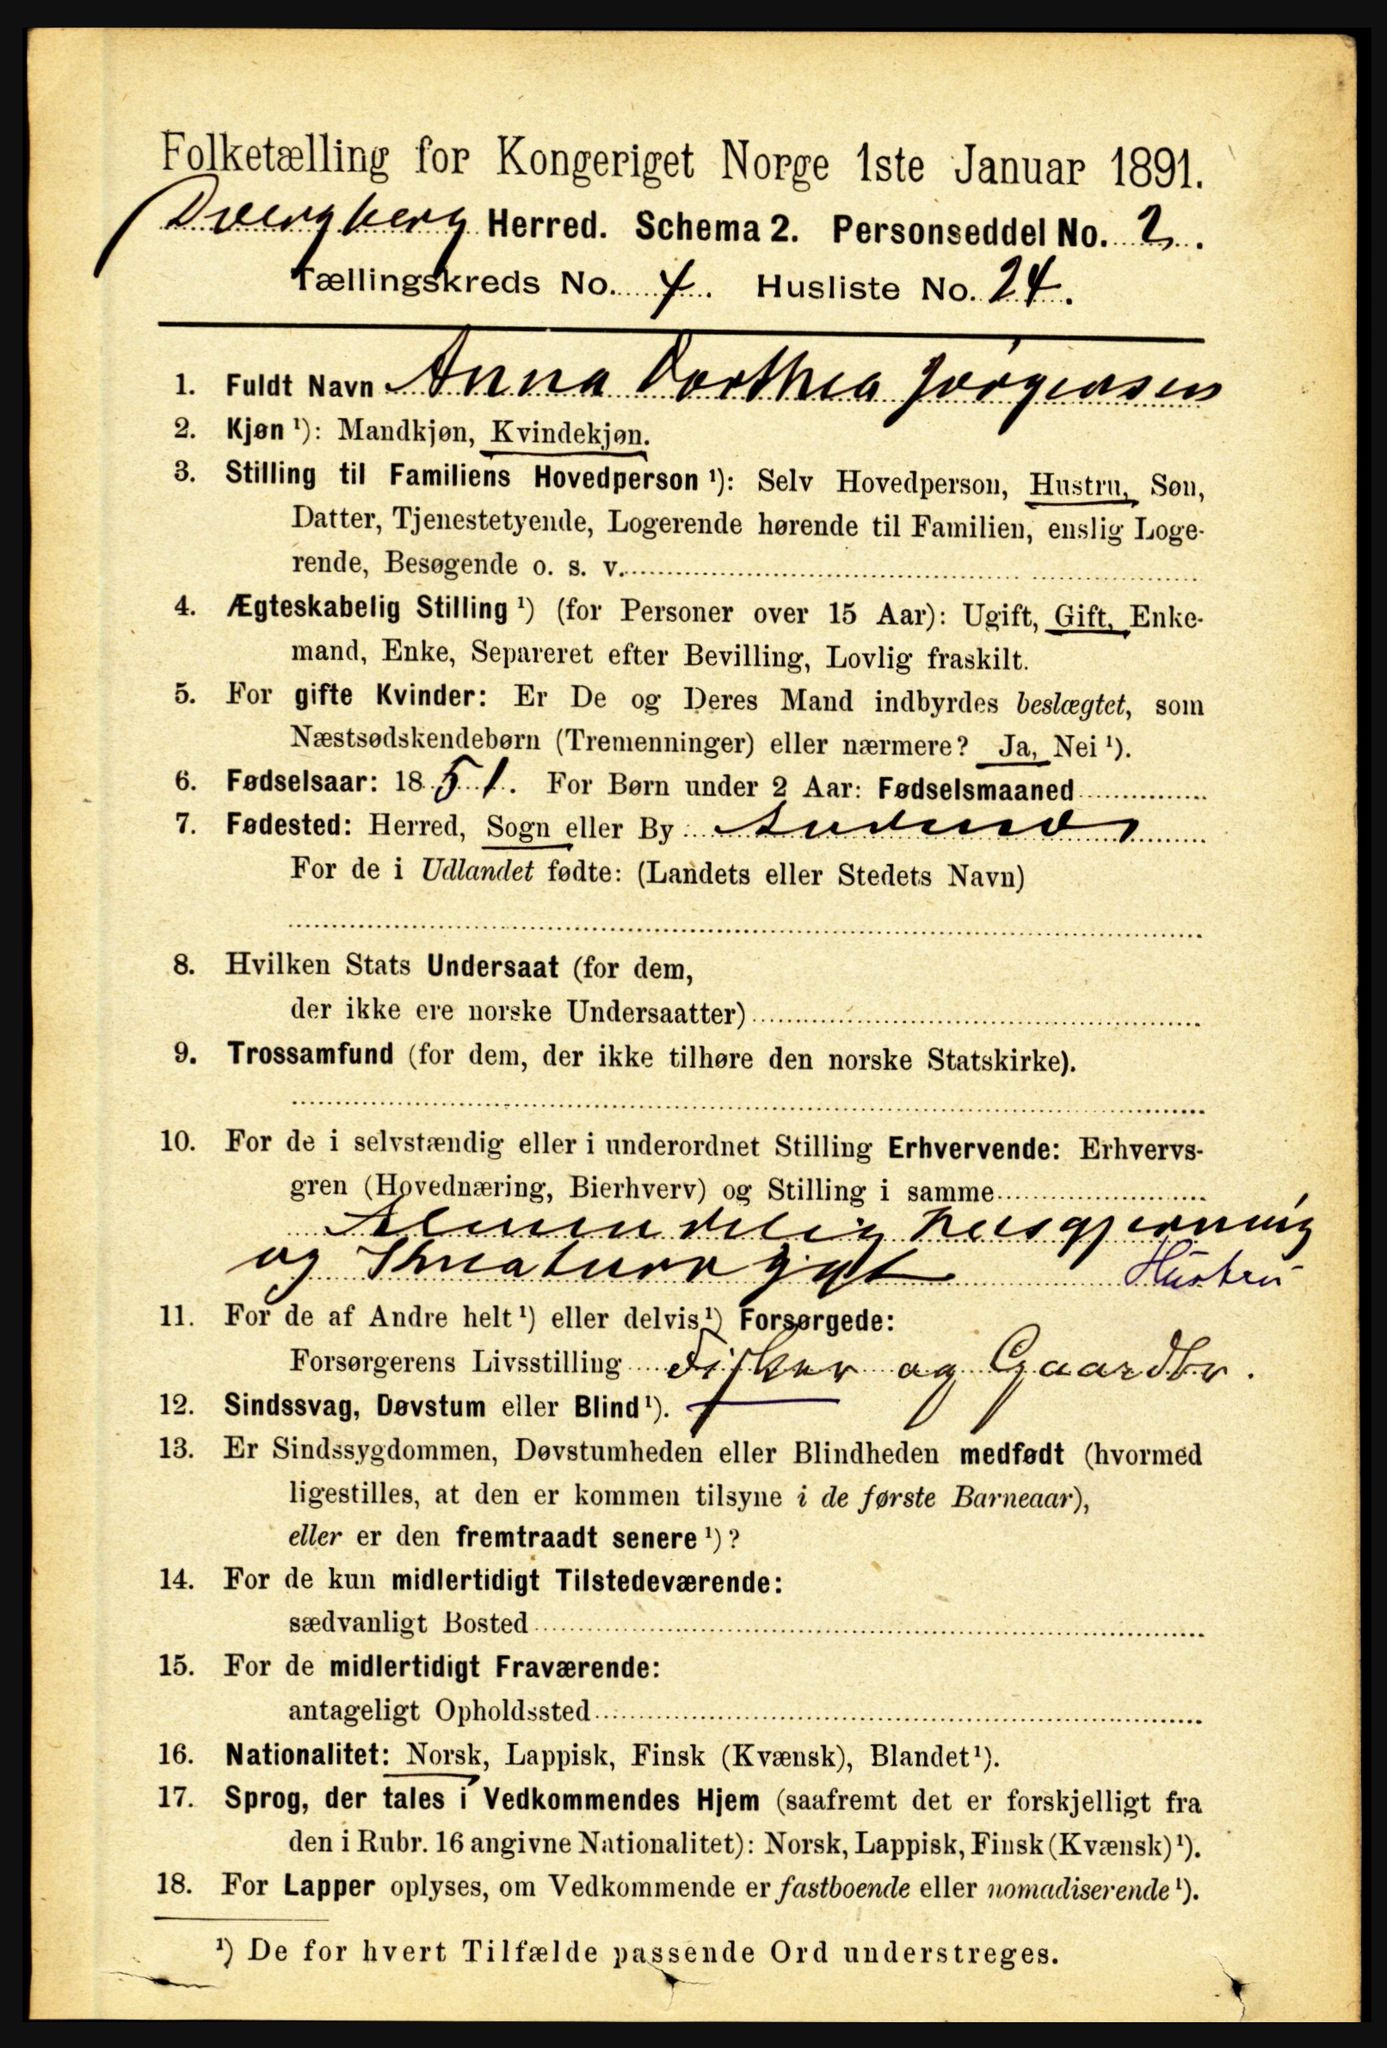 Folketælling for Kongeriget Norge 1ste Januar 1891.
Dvergberg Herred. Schema 2. Personseddel No. 2.
Tællingskreds No. 4. Husliste No. 24.
1. Fuldt Navn Anna Dorthea Jørgensen
2. Kjøn ¹): Mandkjøn, Kvindekjøn.
3. Stilling til Familiens Hovedperson ¹): Selv Hovedperson, Hustru, Søn,
Datter, Tjenestetyende, Logerende hørende til Familien, enslig Loge-
rende, Besøgende o. s. v.
4. Ægteskabelig Stilling ¹) (for Personer over 15 Aar): Ugift, Gift, Enke-
mand, Enke, Separeret efter Bevilling, Lovlig fraskilt.
5. For gifte Kvinder: Er De og Deres Mand indbyrdes beslægtet, som
Næstsødskendebørn (Tremenninger) eller nærmere? Ja, Nei ¹).
6. Fødselsaar: 1851. For Børn under 2 Aar: Fødselsmaaned
7. Fødested: Herred, Sogn eller By Andenæs
For de i Udlandet fødte: (Landets eller Stedets Navn)
8. Hvilken Stats Undersaat (for dem,
der ikke ere norske Undersaatter)
9. Trossamfund (for dem, der ikke tilhøre den norske Statskirke).
10. For de i selvstændig eller i underordnet Stilling Erhvervende: Erhvervs-
gren (Hovednæring, Bierhverv) og Stilling i samme
Almindelig husgjerning
og Kreaturrygt Hustru
11. For de af Andre helt ¹) eller delvis ¹) Forsørgede:
Forsørgerens Livsstilling Fisker og Gaardbr.
12. Sindssvag, Døvstum eller Blind ¹).
13. Er Sindssygdommen, Døvstumheden eller Blindheden medfødt (hvormed
ligestilles, at den er kommen tilsyne i de første Barneaar),
eller er den fremtraadt senere ¹)?
14. For de kun midlertidigt Tilstedeværende:
sædvanligt Bosted
15. For de midlertidigt Fraværende:
antageligt Opholdssted
16. Nationalitet: Norsk, Lappisk, Finsk (Kvænsk), Blandet ¹).
17. Sprog, der tales i Vedkommendes Hjem (saafremt det er forskjelligt fra
den i Rubr. 16 angivne Nationalitet): Norsk, Lappisk, Finsk (Kvænsk) ¹).
18. For Lapper oplyses, om Vedkommende er fastboende eller nomadiserende ¹).
¹) De for hvert Tilfælde passende Ord understreges.